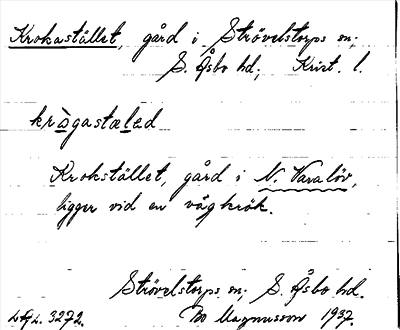 Krokastället, gård i Strövelstorps sn;
S. Åsbo hd; Krist. l.
kràgastæled
Krokstället, gård i N. Varalöv,
ligger vid en vägkrök.
Strövelstorps sn; S. Åsbo hd.
Magnusson 1937.
3272.